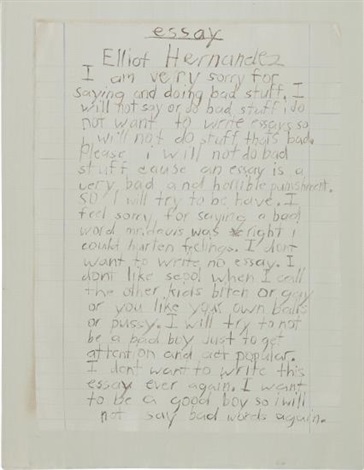 essay
Elliot Hernandez
I am very sorry for
saying and doing bad stuff. I
will not say or do bad stuff i do
not want to write essays so
i will not do stuff thats bad.
please i will not do bad
stuff cause an essay is a
very bad and horrible punishment.
SO I will try to be have. I
feel sorry for saying a bad
word mr.deavis was right i
could hurten feelings. I dont
want to write no essay. I
dont like when I call
the other kids bitch or gay
or you like your own
or pussy. I will try to not
be a bad boy just to get
attention and act popular.
I dont want to write this
essay ever again. I want
to be a good boy so i will
not say bad words again.